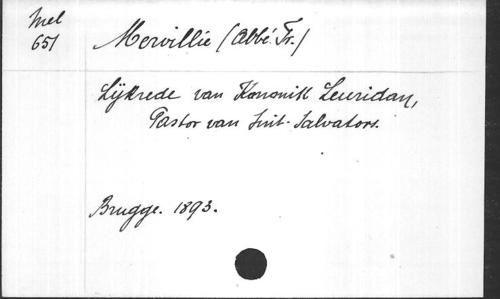 Mel
651
Mervillie (Abbé. Fr.)
Lijkrede van Kanonik Leuridan,
Pastor van Sint-Salvators.
Brugge. 1893.